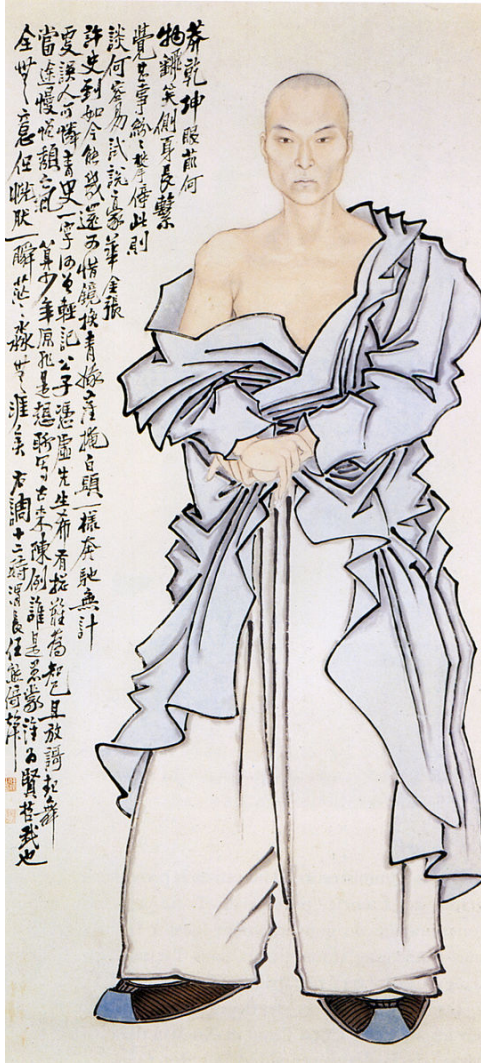 莽乾坤眼前何
物翻笑側身長繫
覺甚事紛〻攀倚此則
談何容易試說豪華金張
許史到如今能幾還可惜鏡換青娥塵掩白頭一樣奔馳無計
更誤人可憐青史一字何曾輕記公子憑虛先生希有總難為知己且放謌起舞
當途慢憎頹氣算少年原非是想聊寫古來陳例誰是愚蒙誰為賢哲我也
全無意但恍然一瞬茫〻淼無涯矣右調十二時渭長任熊倚聲